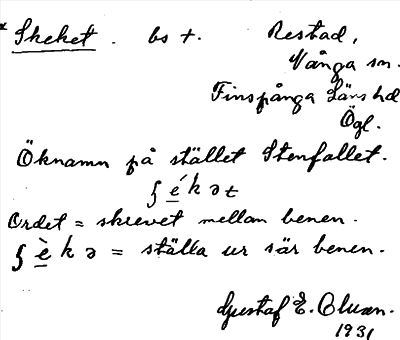 Skeket. bs +. Restad,
Vånga sn.
Finspånga Läns hd
Ögl.
Öknamn på stället Stenfallet.
ʃ é k ə t
Ordet = skrevet mellan benen.
ʃ è k ə = ställa ur sär benen.
Gustaf E. Cluzn.
1931